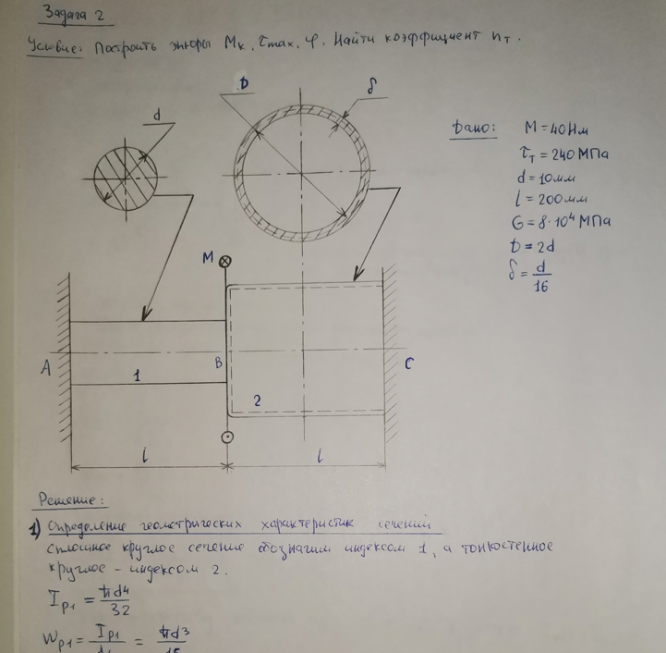 Задача 2
Условие: Построить эпюры Mк, τmax, φ. Найти коэффициент nт.
d
D
δ
Дано: M = 40 Нм
τт = 240 МПа
d = 10 мм
l = 200 мм
G = 8·10⁴ МПа
D = 2d
δ = d/16
M
A
B
C
1
2
l
l
Решение:
1) Определение геометрических характеристик сечений
Сплошное круглое сечение обозначим индексом 1, а тонкостенное
круглое - индексом 2.
Ip1 = πd⁴/32
Wp1 = Ip1/ = πd³/